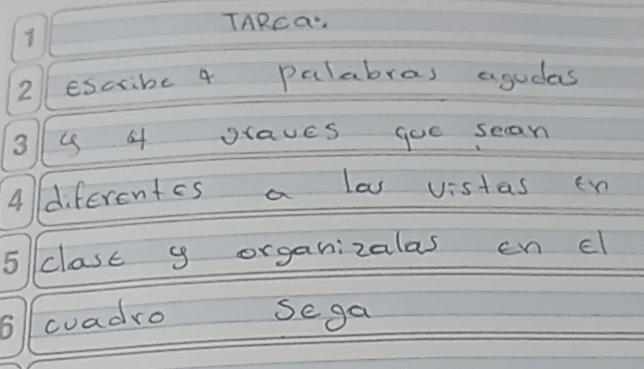 1 TARea:
2 escribe 4 palabras agudas
3 y 4 graves que sean
4 diferentes a las vistas en
5 clase y organizalas en el
6 cuadro Sega